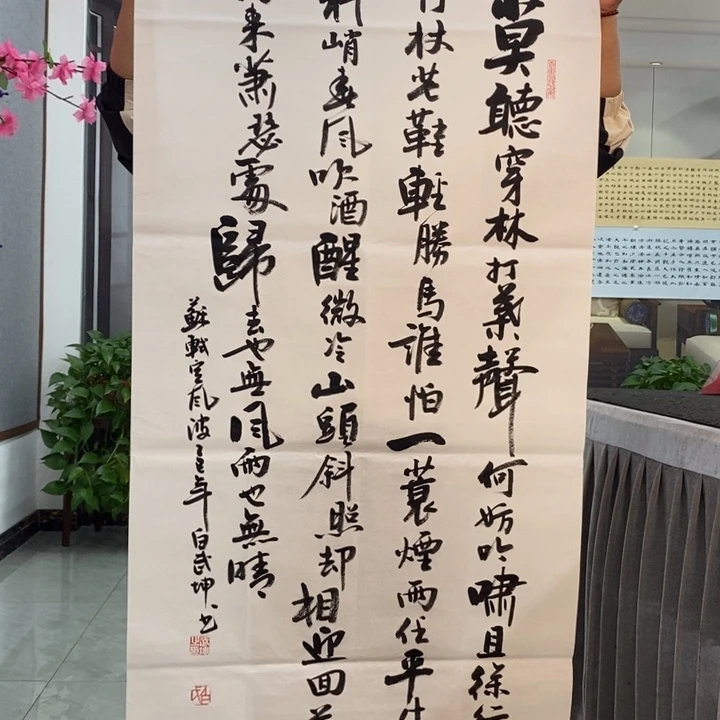 莫聽穿林打葉聲何妨吟嘯且徐行
竹杖芒鞋輕勝馬誰怕一蓑煙雨任平生
料峭春風吹酒醒微冷山頭斜照却相迎回首
來蕭瑟處歸去也無風雨也無晴
蘇軾定風波年白武坤书